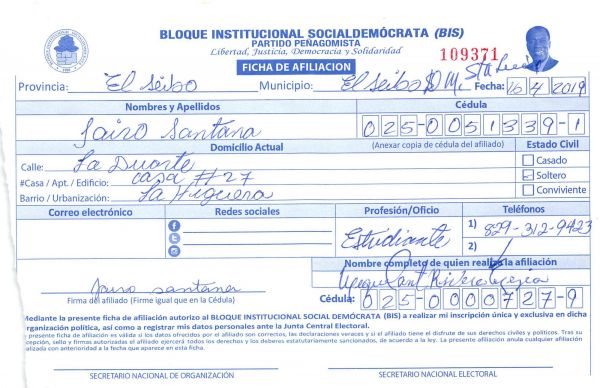 BLOQUE INSTITUCIONAL SOCIALDEMÓCRATA (BIS)
PARTIDO PEÑAGOMISTA
Libertad, Justicia, Democracia y Solidaridad
109371
FICHA DE AFILIACION
Provincia: El Seibo Municipio: El Seibo D M. Sta Lucia Fecha: 16/4/2019
Nombres y Apellidos Cédula
Jairo Santana 025-0051339-1
Domicilio Actual (Anexar copia de cédula del afiliado) Estado Civil
Calle: La Duarte Casado
#Casa / Apt. / Edificio: casa #27 Soltero
Barrio / Urbanización: La Higuera Conviviente
Correo electrónico Redes sociales Profesión/Oficio Teléfonos
Estudiante 1) 829-312-9423
2)
Nombre completo de quien realiza la afiliación
jairo santana
Firma del afiliado (Firme igual que en la Cédula) Cédula: 025-0000727-9
Mediante la presente ficha de afiliación autorizo al BLOQUE INSTITUCIONAL SOCIAL DEMÓCRATA (BIS) a realizar mi inscripción única y exclusiva en dicha
organización política, así como a registrar mis datos personales ante la Junta Central Electoral.
presente ficha de afiliación es valida si los datos ofrecidos por el afiliado son correctos, las declaraciones veraces y si el afiliado tiene el disfrute de sus derechos civiles y políticos. Tras su
cepción, sello y firmas autorizadas el afiliado ejercerá todos los derechos y los deberes estatutariamente sancionados, de acuerdo a la ley. La presente afiliación anula cualquier afiliación
alizada con anterioridad a la fecha que aparece en esta ficha.
SECRETARIO NACIONAL DE ORGANIZACIÓN SECRETARIO NACIONAL ELECTORAL